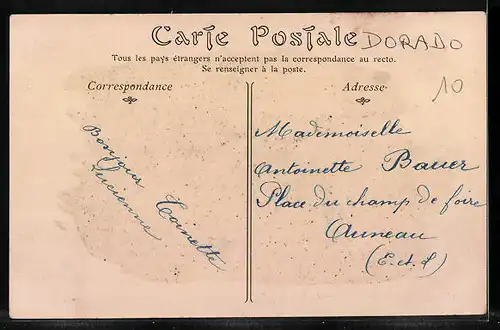 Carte Postale
DORADO
Tous les pays étrangers n'acceptent pas la correspondance au recto.
Se renseigner à la poste.
Correspondance
Adresse
10
Bonjour Toinette
Lucienne
Mademoiselle
Antoinette Bauer
Place du champ de foire
Auneau
(E-et-L)